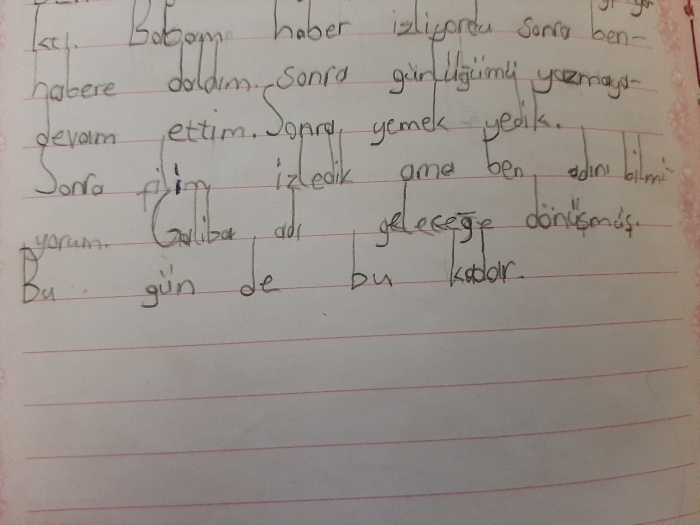 Babam haber izliyordu sonra ben-
habere daldım. Sonra günlüğümü yazmaya-
devam ettim. Sonra yemek yedik.
Sonra filim izledik ama ben adını bilmi-
yorum. Galiba adı geleceğe dönüşmüş.
Bu gün de bu kadar.